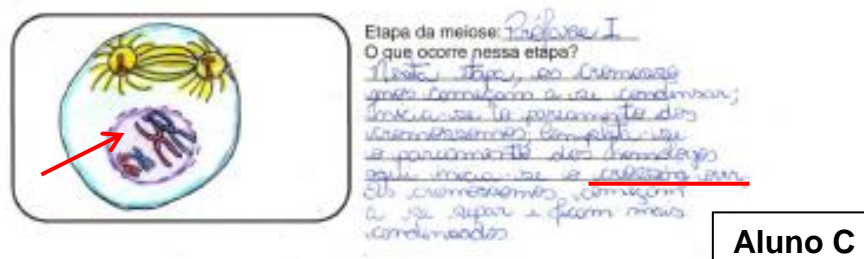 Etapa da meiose: Prófase I
O que ocorre nessa etapa?
Nesta etapa, os cromosso
mos começam a se condensar;
inicia-se o pareamento dos
cromossomos, completa-se
o pareamento dos homólogos
aqui inicia-se o crossing over
Os cromossomos começam
a se separ e ficam mais
condensados
Aluno C